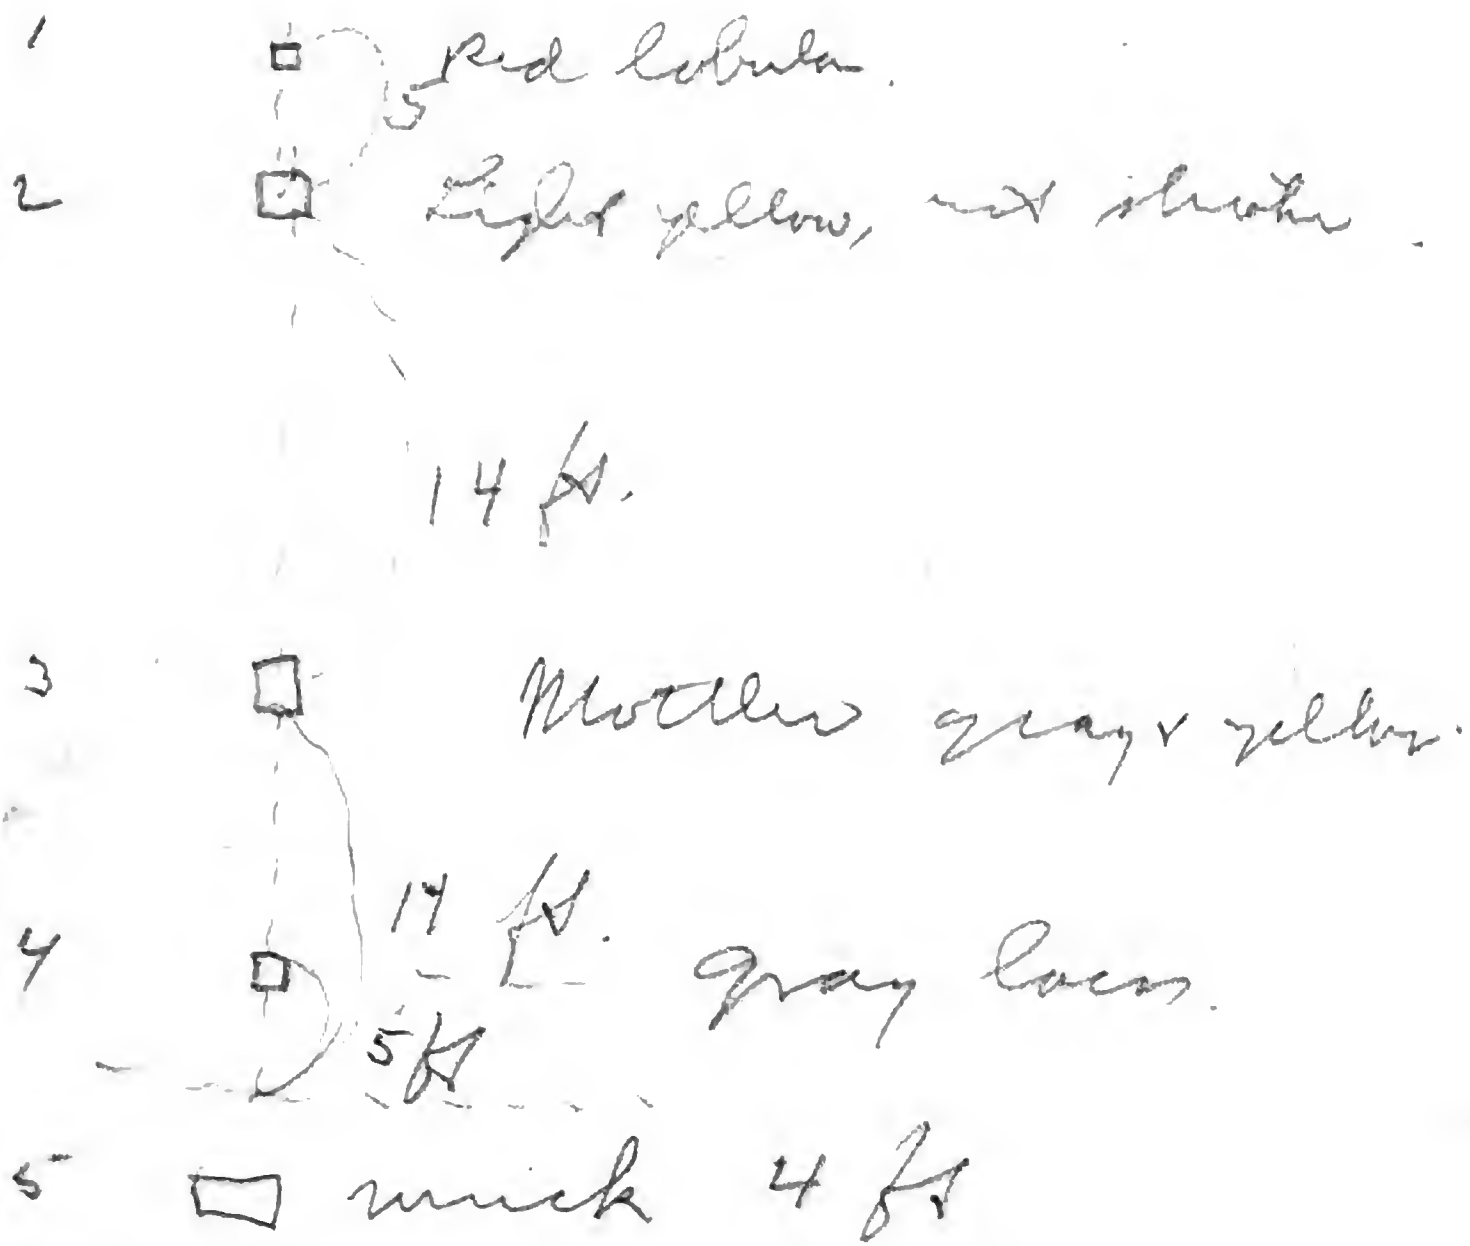 1 Red lobular.
5
2 Light yellow, not
14 ft.
3 Mottled gray & yellow.
14 ft.
4 gray loess.
5 ft
5 muck 4 ft